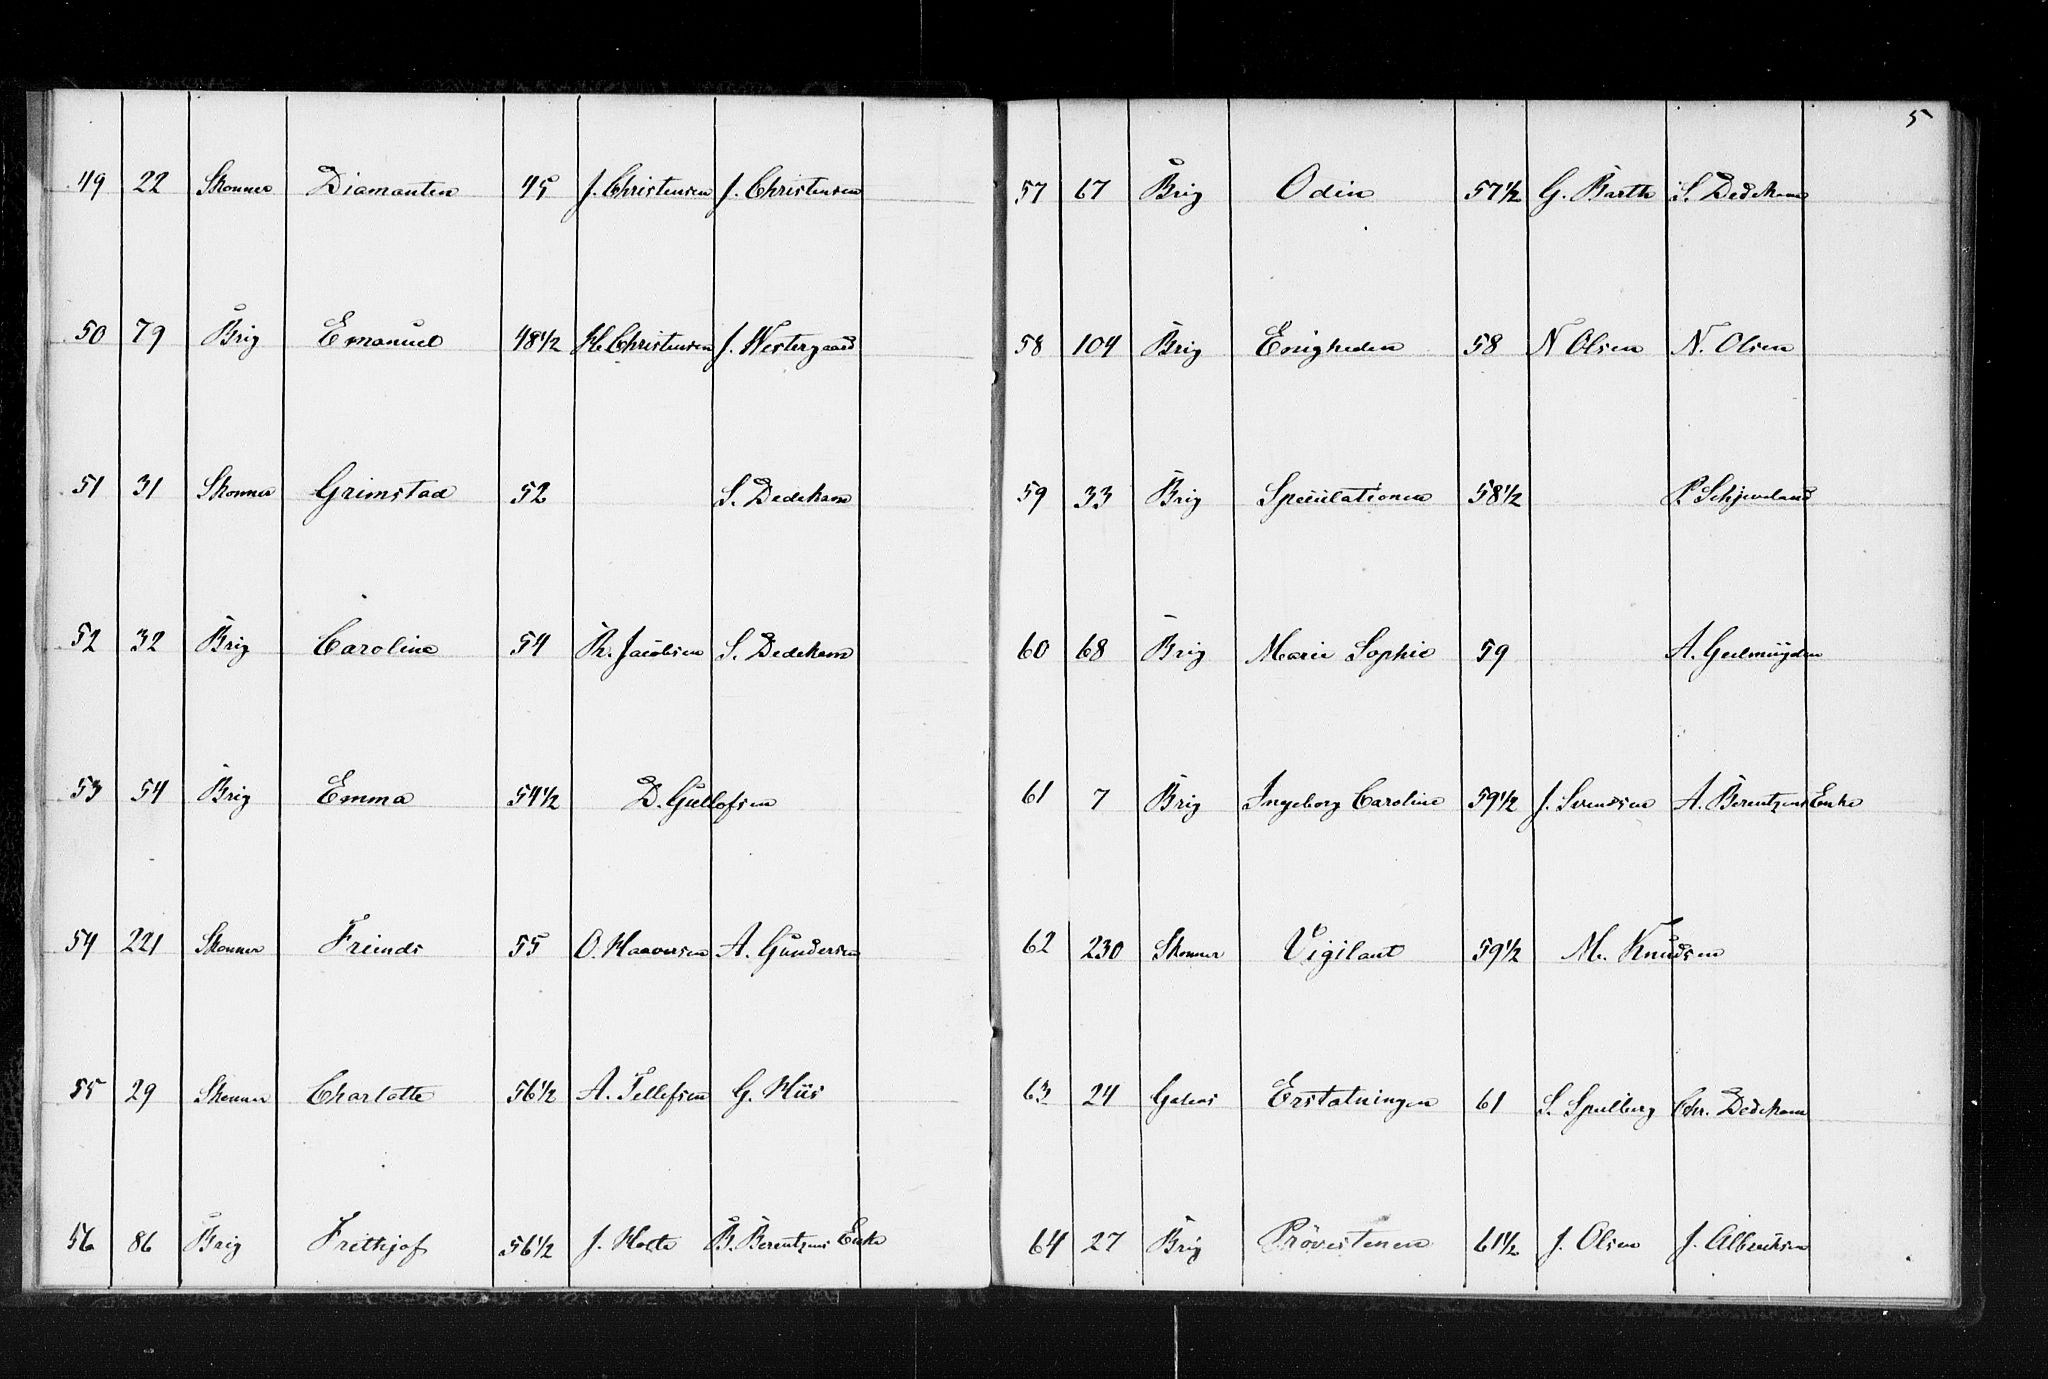 49 22 Skonner Diamanten 45 J. Christensen J. Christensen
50 79 Brig Emanuel 48½ H. Christensen J. Westergaard
51 31 Skonner Grimstad 52 S. Dedekam
52 32 Brig Caroline 54 Th. Jacobsen S. Dedekam
53 54 Brig Emma 54½ D. Gullofsen
54 221 Skonner Freinds 55 O. Haaversen A. Gundersen
55 29 Skonner Charlotte 56½ A. Tellefsen G. Hiis
56 86 Brig Frithjof 56½ J. Holte B. Berentzens Enke
5
57 67 Brig Odin 57½ G. Barth S. Dedekam
58 104 Brig Enigheden 58 N Olsen N. Olsen
59 33 Brig Speculationen 58½ P. Schjeveland
60 68 Brig Marie Sophie 59 A. Geelmuyden
61 7 Brig Ingeborg Caroline 59½ J. Svendsen A. Berentzens Enke
62 230 Skonner Vigilant 59½ M. Knudsen
63 24 Galeas Erstatningen 61 S. Spelberg Chr. Dedekam
64 27 Brig Prövestenen 61½ J. Olsen J. Albrektsen